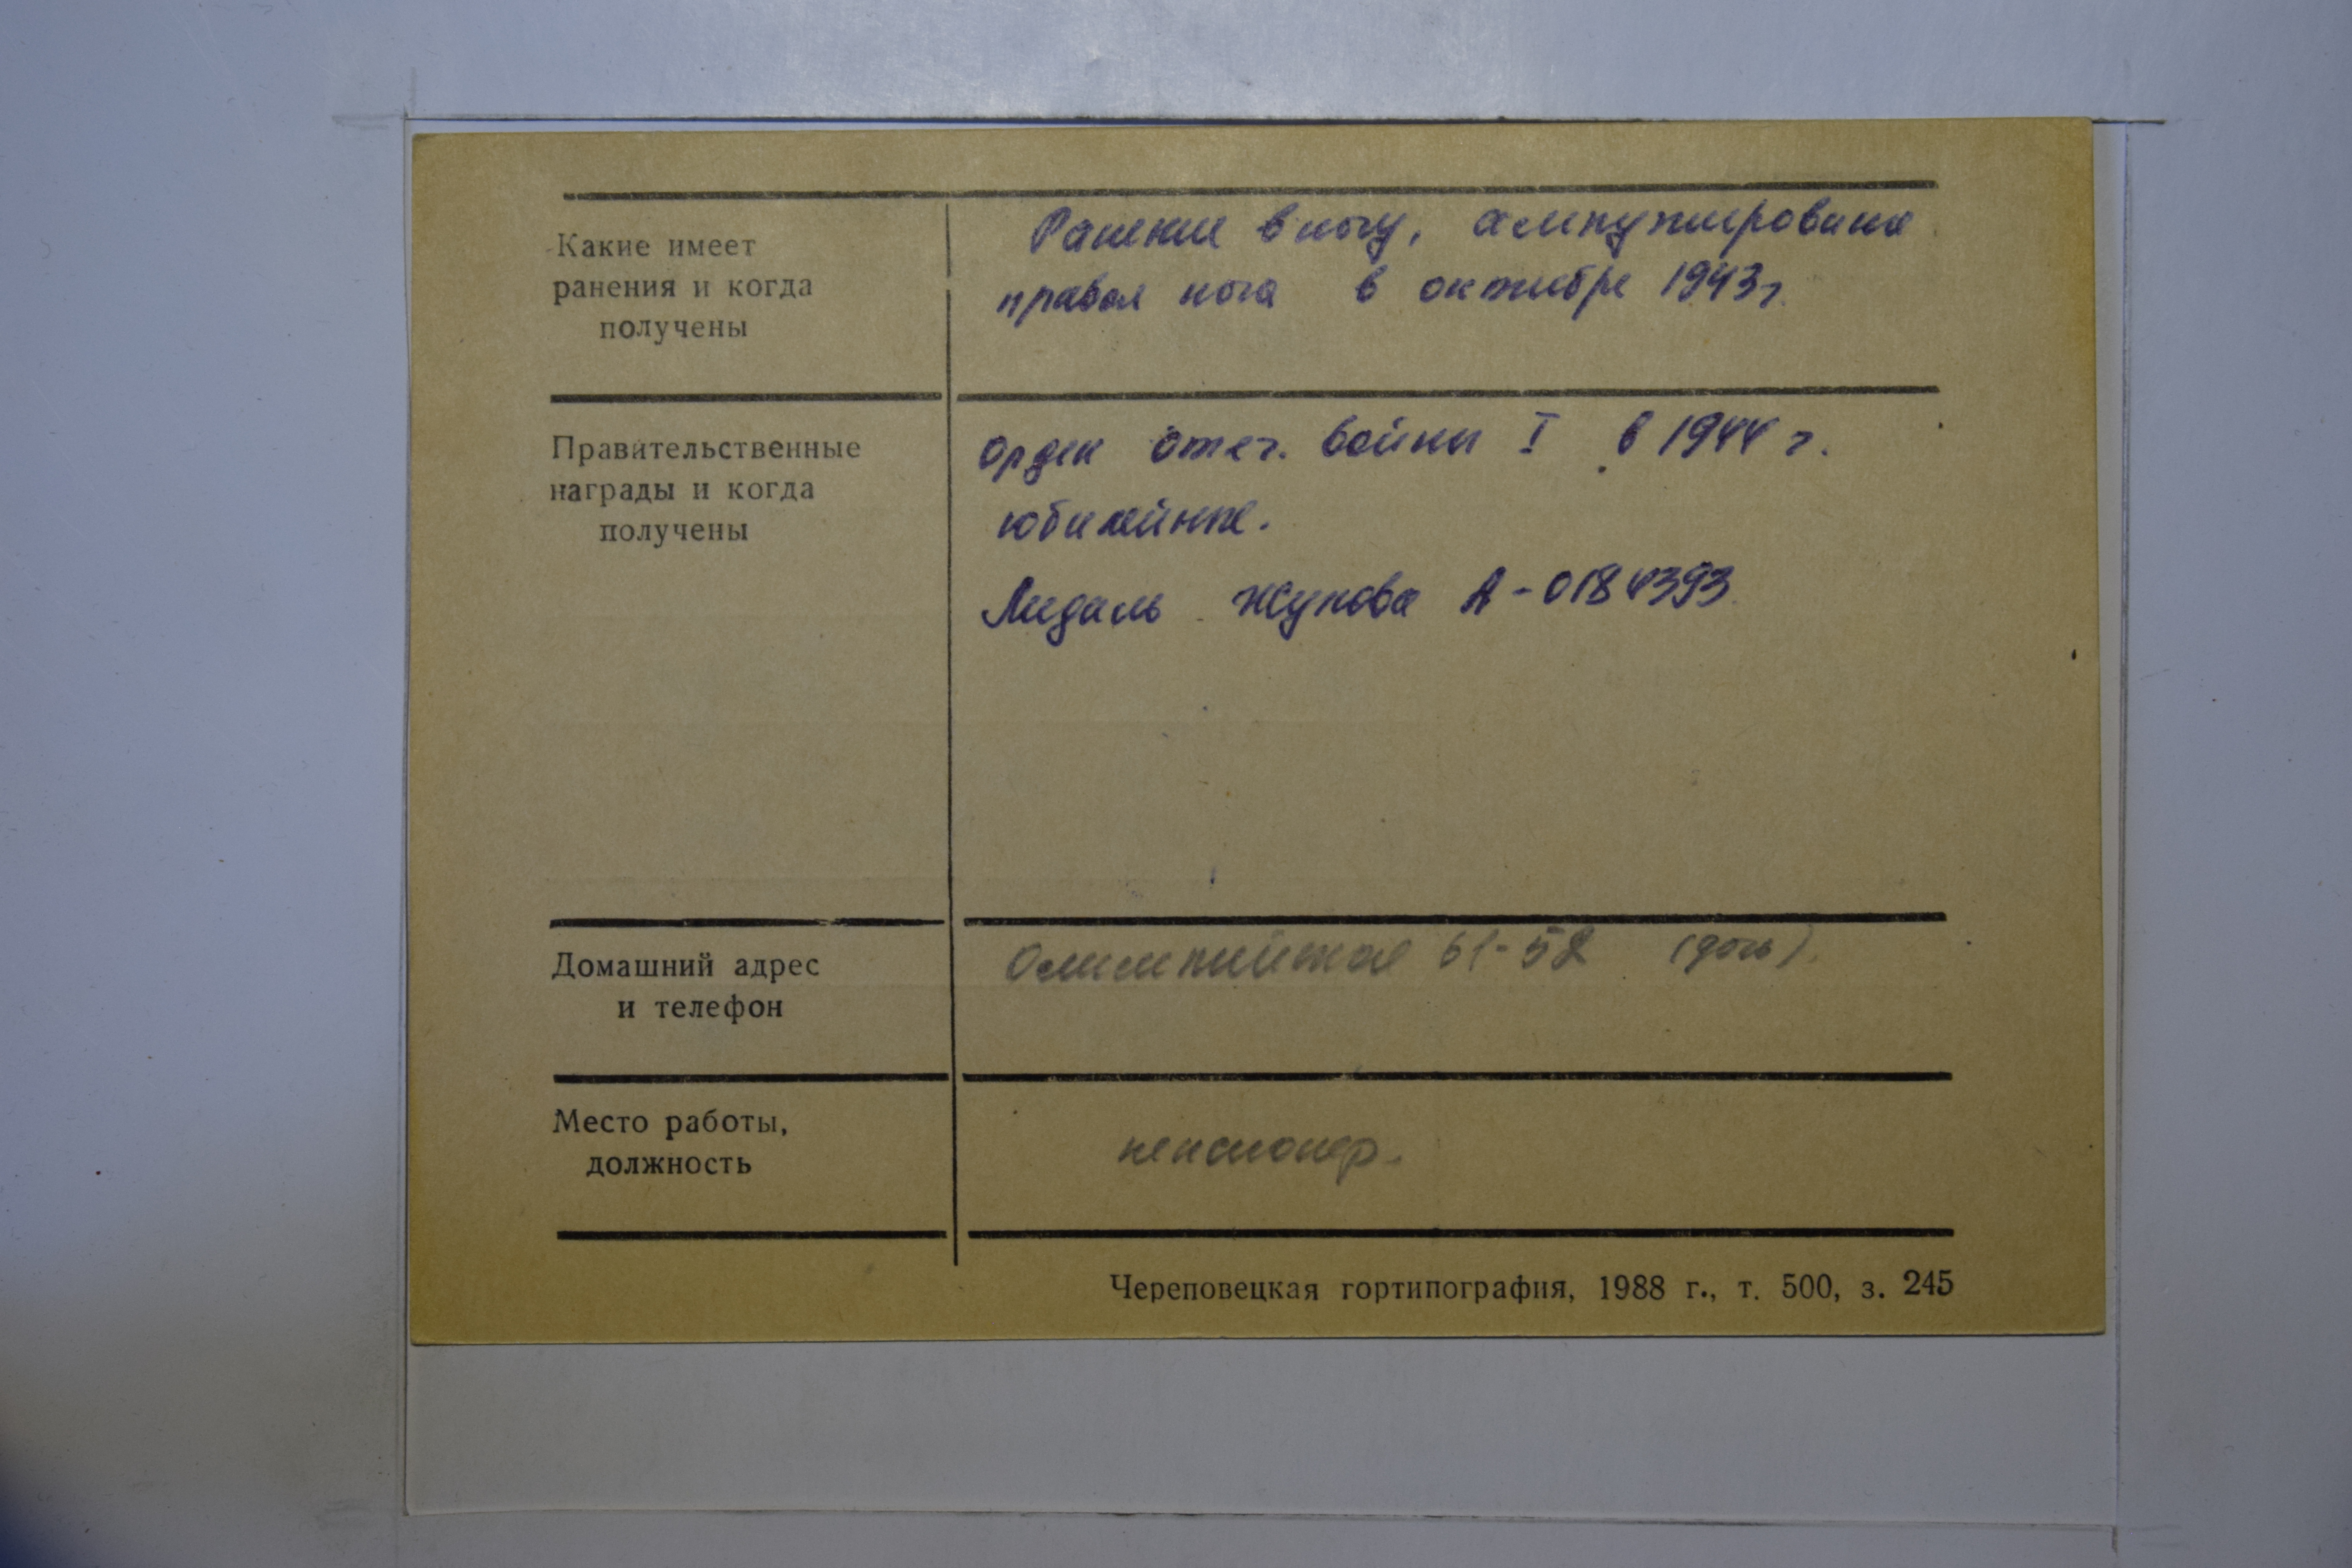 Какие имеет
ранения и когда
получены
Ранение в ногу, ампутирована
правая нога в октябре 1943г.
Правительственные
награды и когда
получены
Орден Отеч. войны I в 1944 г.
юбилейные.
Медаль Жукова А-0184393
Домашний адрес
и телефон
Олимпийская 61-52 (дочь).
Место работы,
должность
пенсионер.
Череповецкая гортипография, 1988 г., т. 500, з. 245